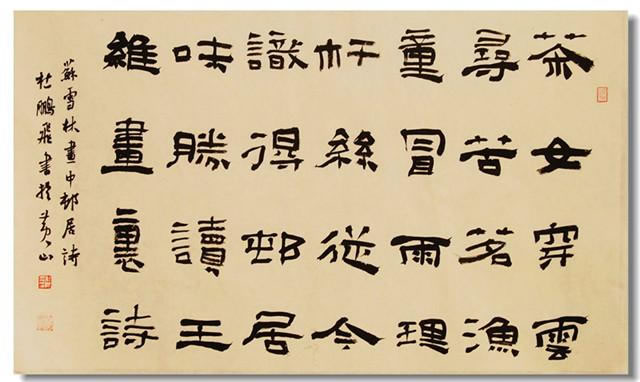 茶女穿雲
尋苦茗漁
童冒雨理
杆絲從今
識得邨居
味勝讀王
維畫裏詩
蘇雪林畫中邨居詩
杜鵬飛書於黄山